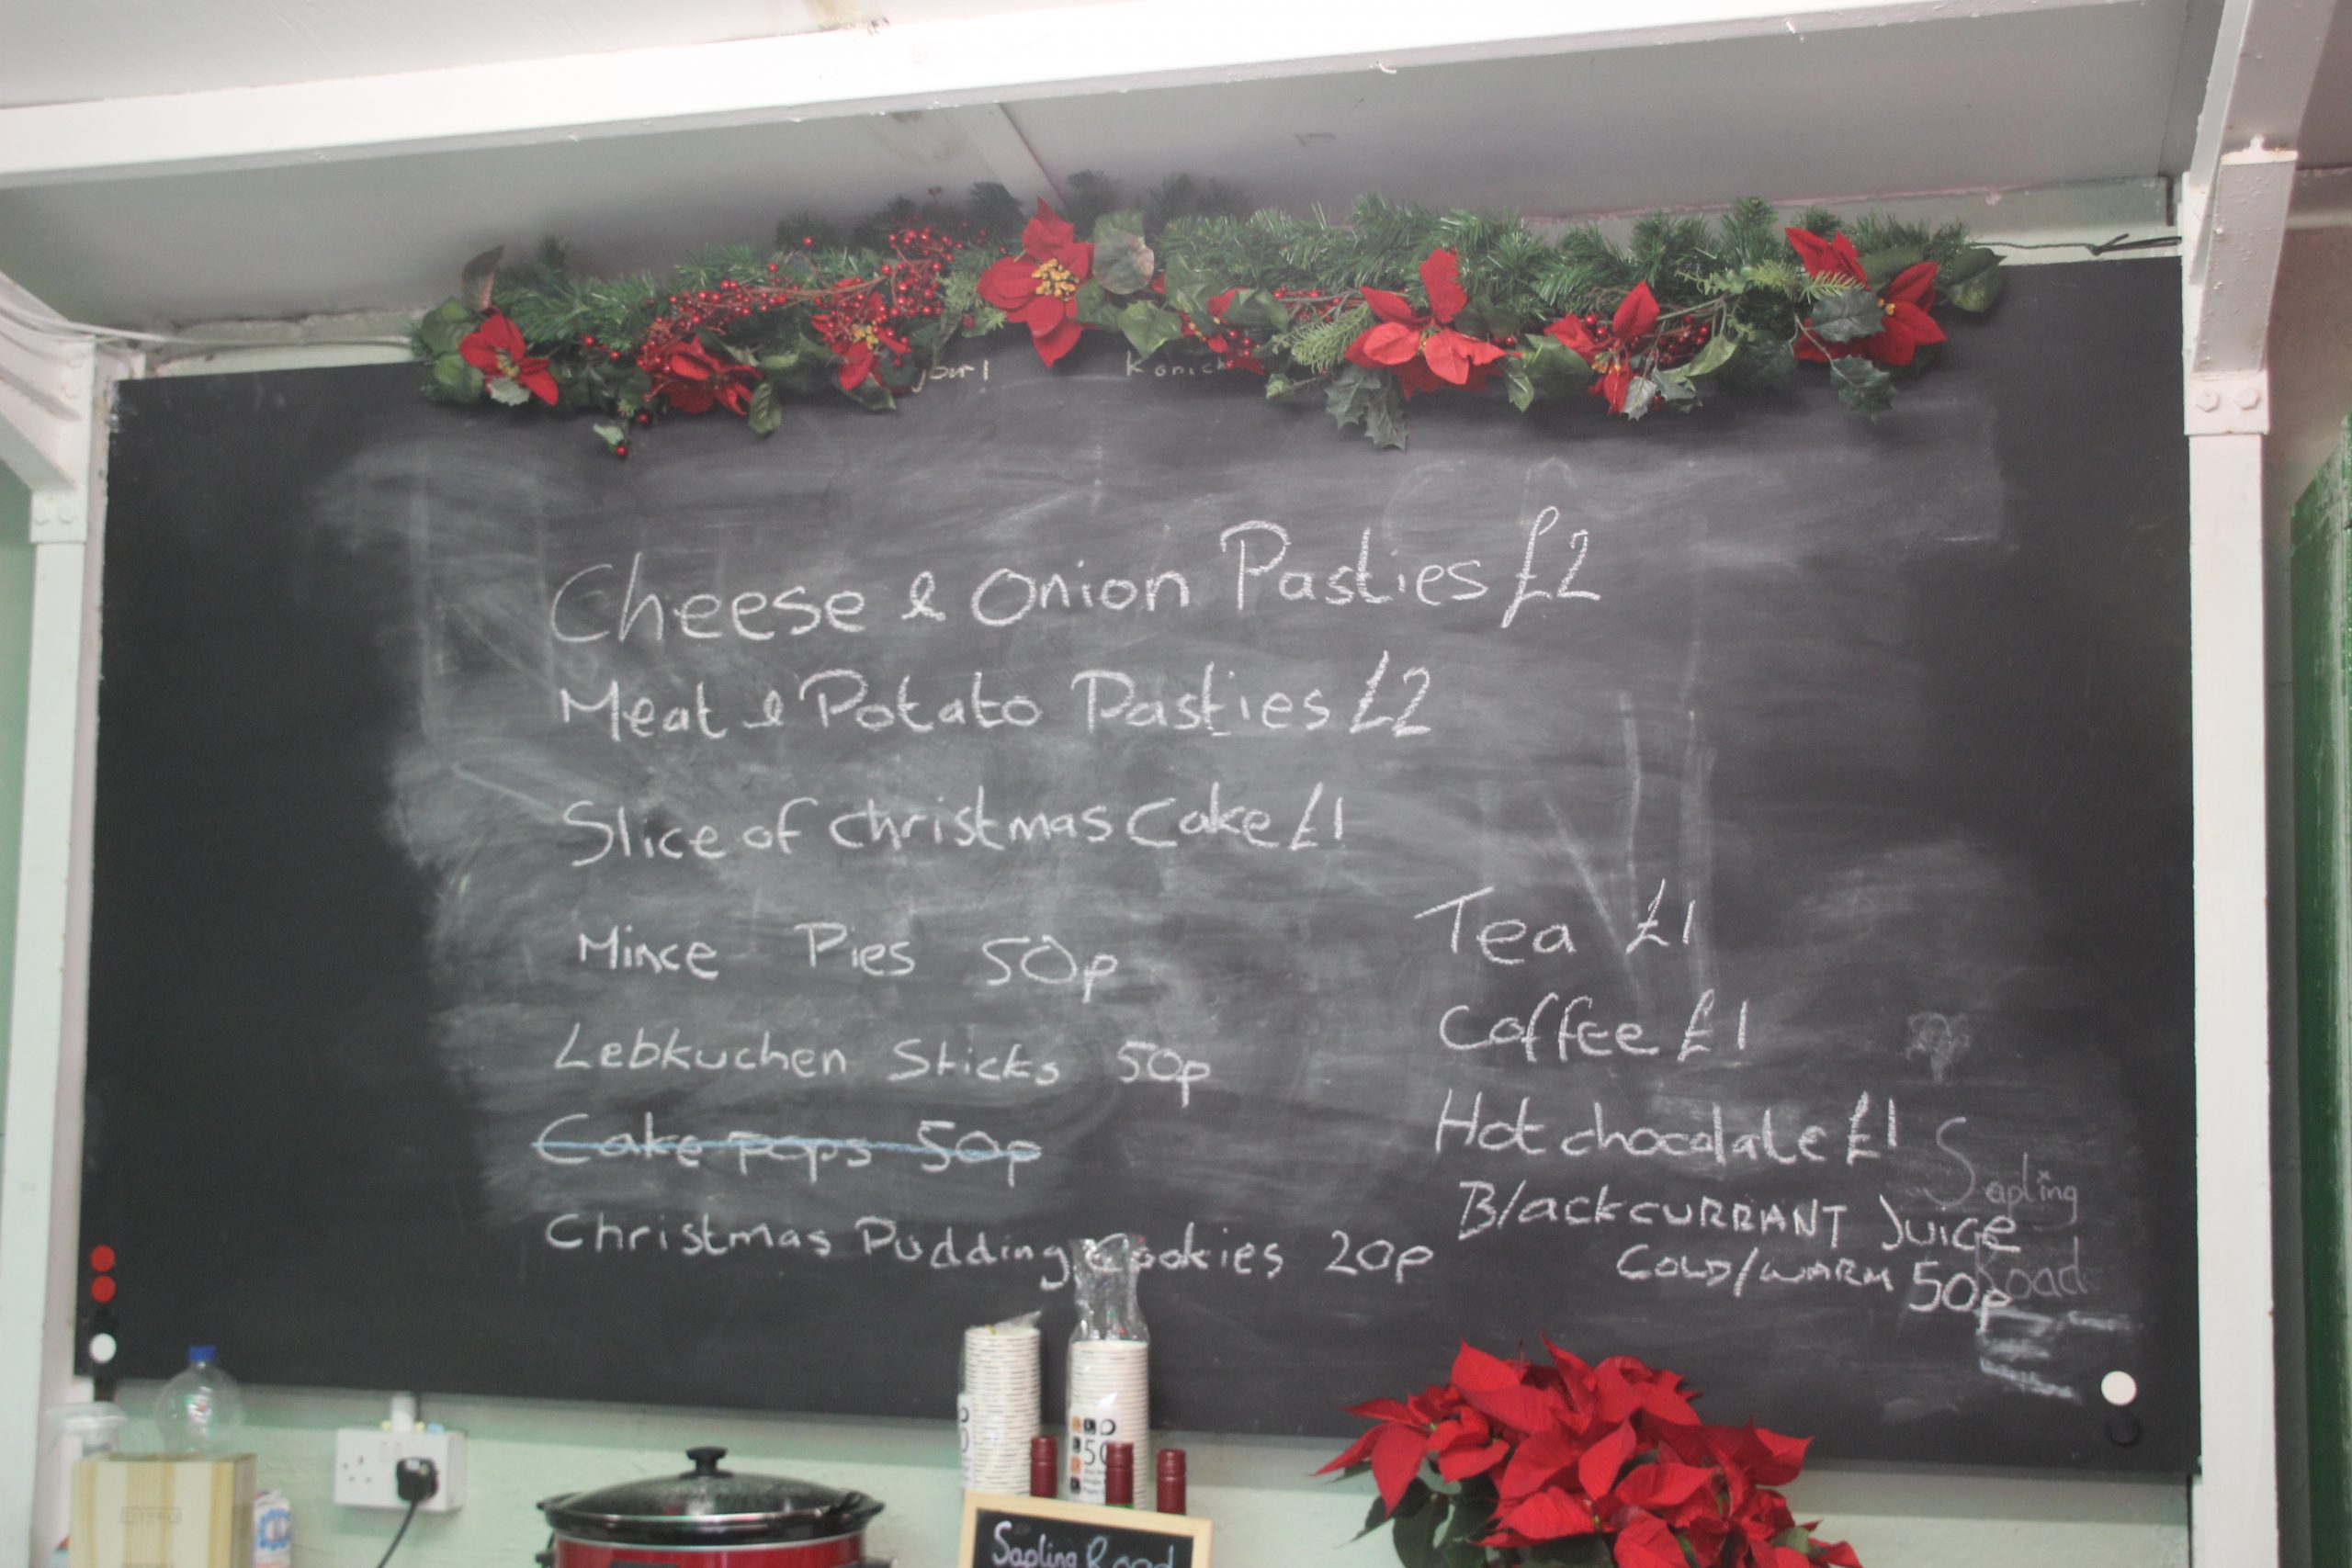 Cheese & Onion Pasties £2
Meat & Potato Pasties £2
Slice of Christmas Cake £1
Mince Pies 50p
Lebkuchen Sticks 50p
Cake pops 50p
Christmas Pudding Cookies 20p
Tea £1
Coffee £1
Hot chocolate £1
BlackcURRANT JUICE
COLD/WARM 50p
Sapling
Road
50
Sapling Road